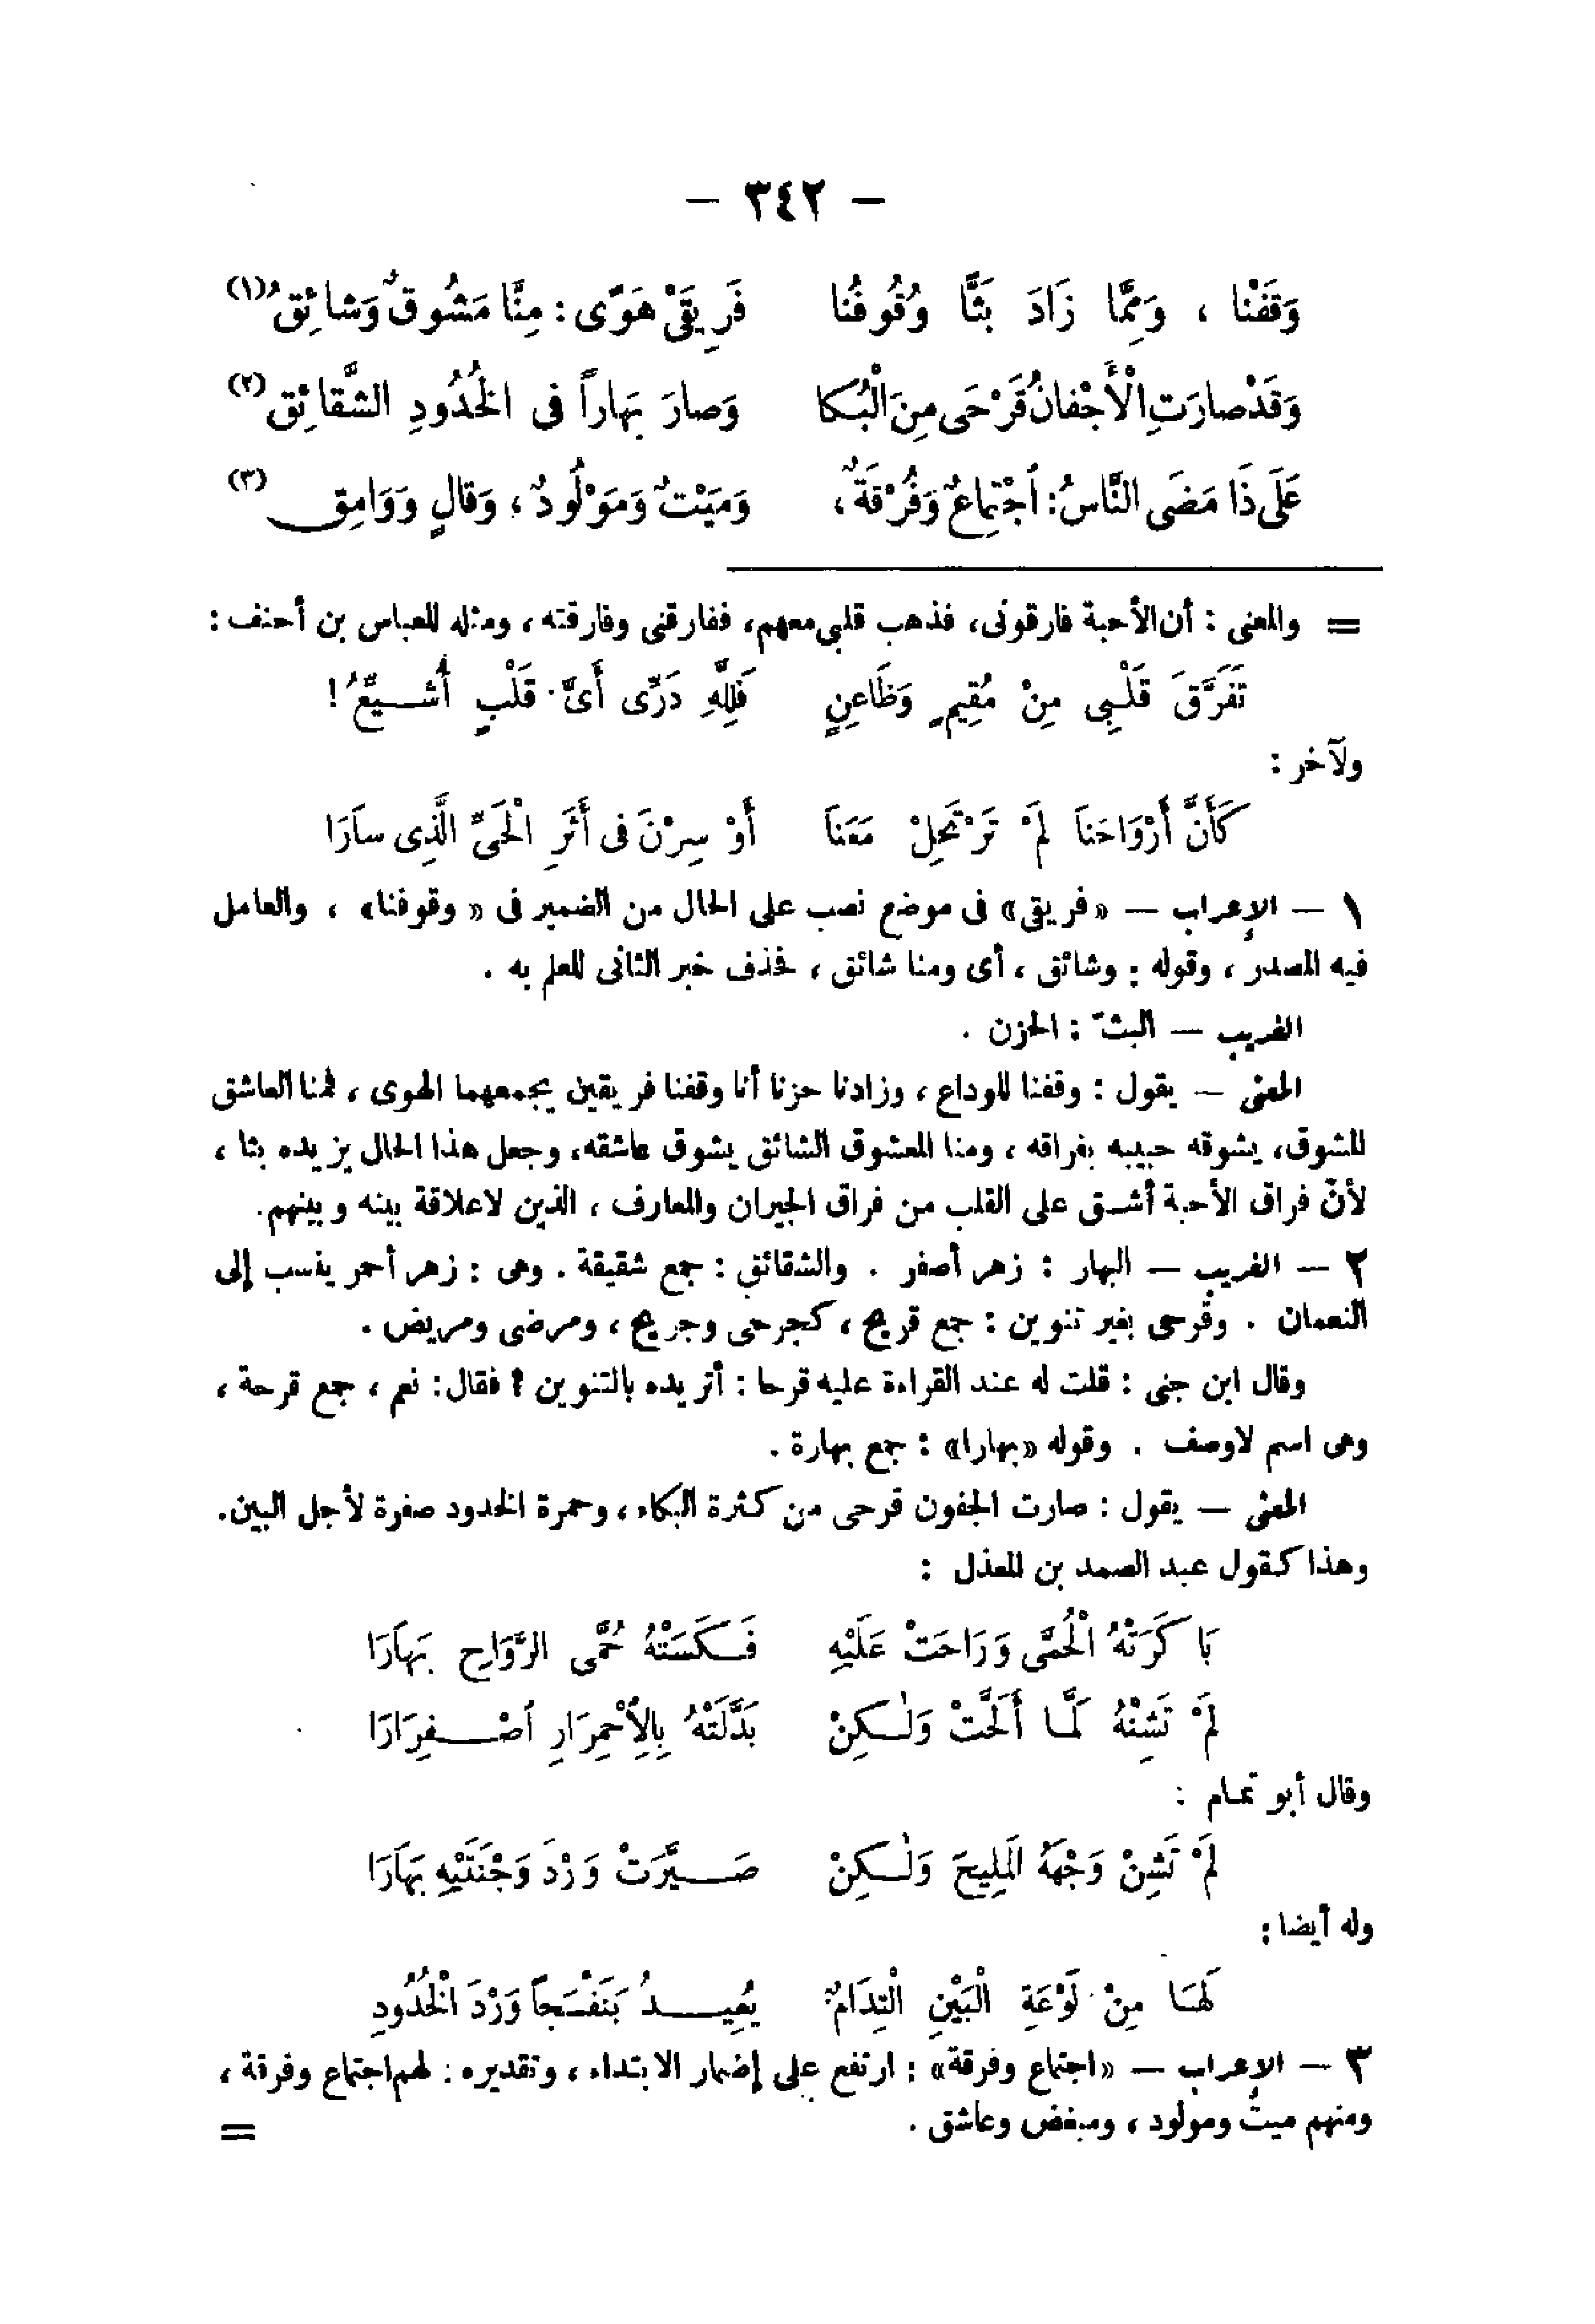 — ٣٤٢ —
وَقَفْنَا ، وَمِمَّا زَادَ بَثًّا وُقُوفُنا فَرِيقَىْ هَوًى : مِنَّا مَشُوقٌ وَشائِقُ (١)
وَقَدْ صارَتِ الْأَجْفانُ قَرْحَى مِنَ الْبُكا وَصارَ بَهاراً فى الخُدُودِ الشَّقائِق (٢)
عَلَى ذَا مَضَى النَّاسُ : اُجْتِماعٌ وَفُرْقَةٌ ، وَمَيْتٌ وَمَوْلُودٌ ، وَقالٍ وَوَامِق (٣)
= والمعنى : أن الأحبة فارقونى، فذهب قلبى معهم، ففارقنى وفارقته ، ومثله للعباس بن أحنف :
تَفَرَّقَ قَلْبِى مِنْ مُقِيمٍ وَظَاعِنٍ فَلِلّهِ دَرِّى أَىَّ قَلْبٍ أُشَيِّعُ !
ولآخر :
كَأَنَّ أَرْوَاحَنَا لَمْ تَرْتَحِلْ مَعَنَا أَوْ سِرْنَ فى أَثَرِ الْحَىِّ الَّذِى سارَا
١ — الإعراب — «فريقى» فى موضع نصب على الحال من الضمير فى « وقوفنا» ، والعامل
فيه المصدر ، وقوله : وشائق ، أى ومنا شائق ، فحذف خبر الثانى للعلم به .
الغريب — البثّ : الحزن .
المعنى — يقول : وقفنا للوداع ، وزادنا حزنا أنا وقفنا فريقين يجمعهما الهوى ، فمنا العاشق
المشوق، يشوقه حبيبه بفراقه ، ومنا المعشوق الشائق يشوق عاشقه، وجعل هذا الحال يزيده بثا ،
لأنّ فراق الأحبة أشق على القلب من فراق الجيران والمعارف ، الذين لاعلاقة بينه وبينهم.
٢ — الغريب — البهار : زهر أصفر . والشقائق : جمع شقيقة . وهى : زهر أحمر ينسب إلى
النعمان . وقرحى بغير تنوين : جمع قريح ، كجرحى وجريح ، ومرضى ومريض .
وقال ابن جنى : قلت له عند القراءة عليه قرحا : أتريده بالتنوين ؟ فقال : نعم ، جمع قرحة ،
وهى اسم لاوصف . وقوله «بهارا» : جمع بهارة .
المعنى — يقول : صارت الجفون قرحى من كثرة البكاء ، وحمرة الخدود صفرة لأجل البين.
وهذا كقول عبد الصمد بن المعذل :
بَاكَرَتْهُ الْحُمَّى وَرَاحَتْ عَلَيْهِ فَكَسَتْهُ حُمَّى الرَّوَاحِ بَهَارَا
لَمْ تَشِنْهُ لَمَّا أَلَحَّتْ وَلٰكِنْ بَدَّلَتْهُ بِالِاُحْمِرَارِ اُصْفِرَارَا
وقال أبو تمام :
لَمْ تَشِنْ وَجْهَهُ الْمَلِيحَ وَلٰكِنْ صَيَّرَتْ وَرْدَ وَجْنَتَيْهِ بَهَارَا
وله أيضا :
لَهَا مِنْ لَوْعَةِ الْبَيْنِ الْتِدَامٌ يُعِيدُ بَنَفْسَجاً وَرْدَ الْخُدُودِ
٣ — الإعراب — «اجتماع وفرقة» : ارتفع على إضمار الابتداء ، وتقديره : لهم اجتماع وفرقة ،
ومنهم ميتٌ ومولود ، ومبغض وعاشق . =